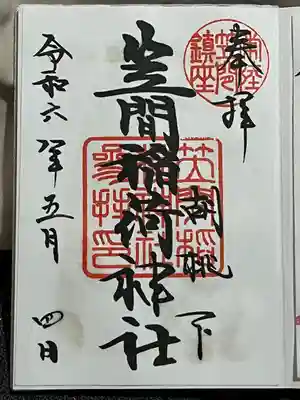 奉拝
胡桃下
笠間稲荷神社
令和六年五月四日
常陸
笠間
鎮座
笠間稲